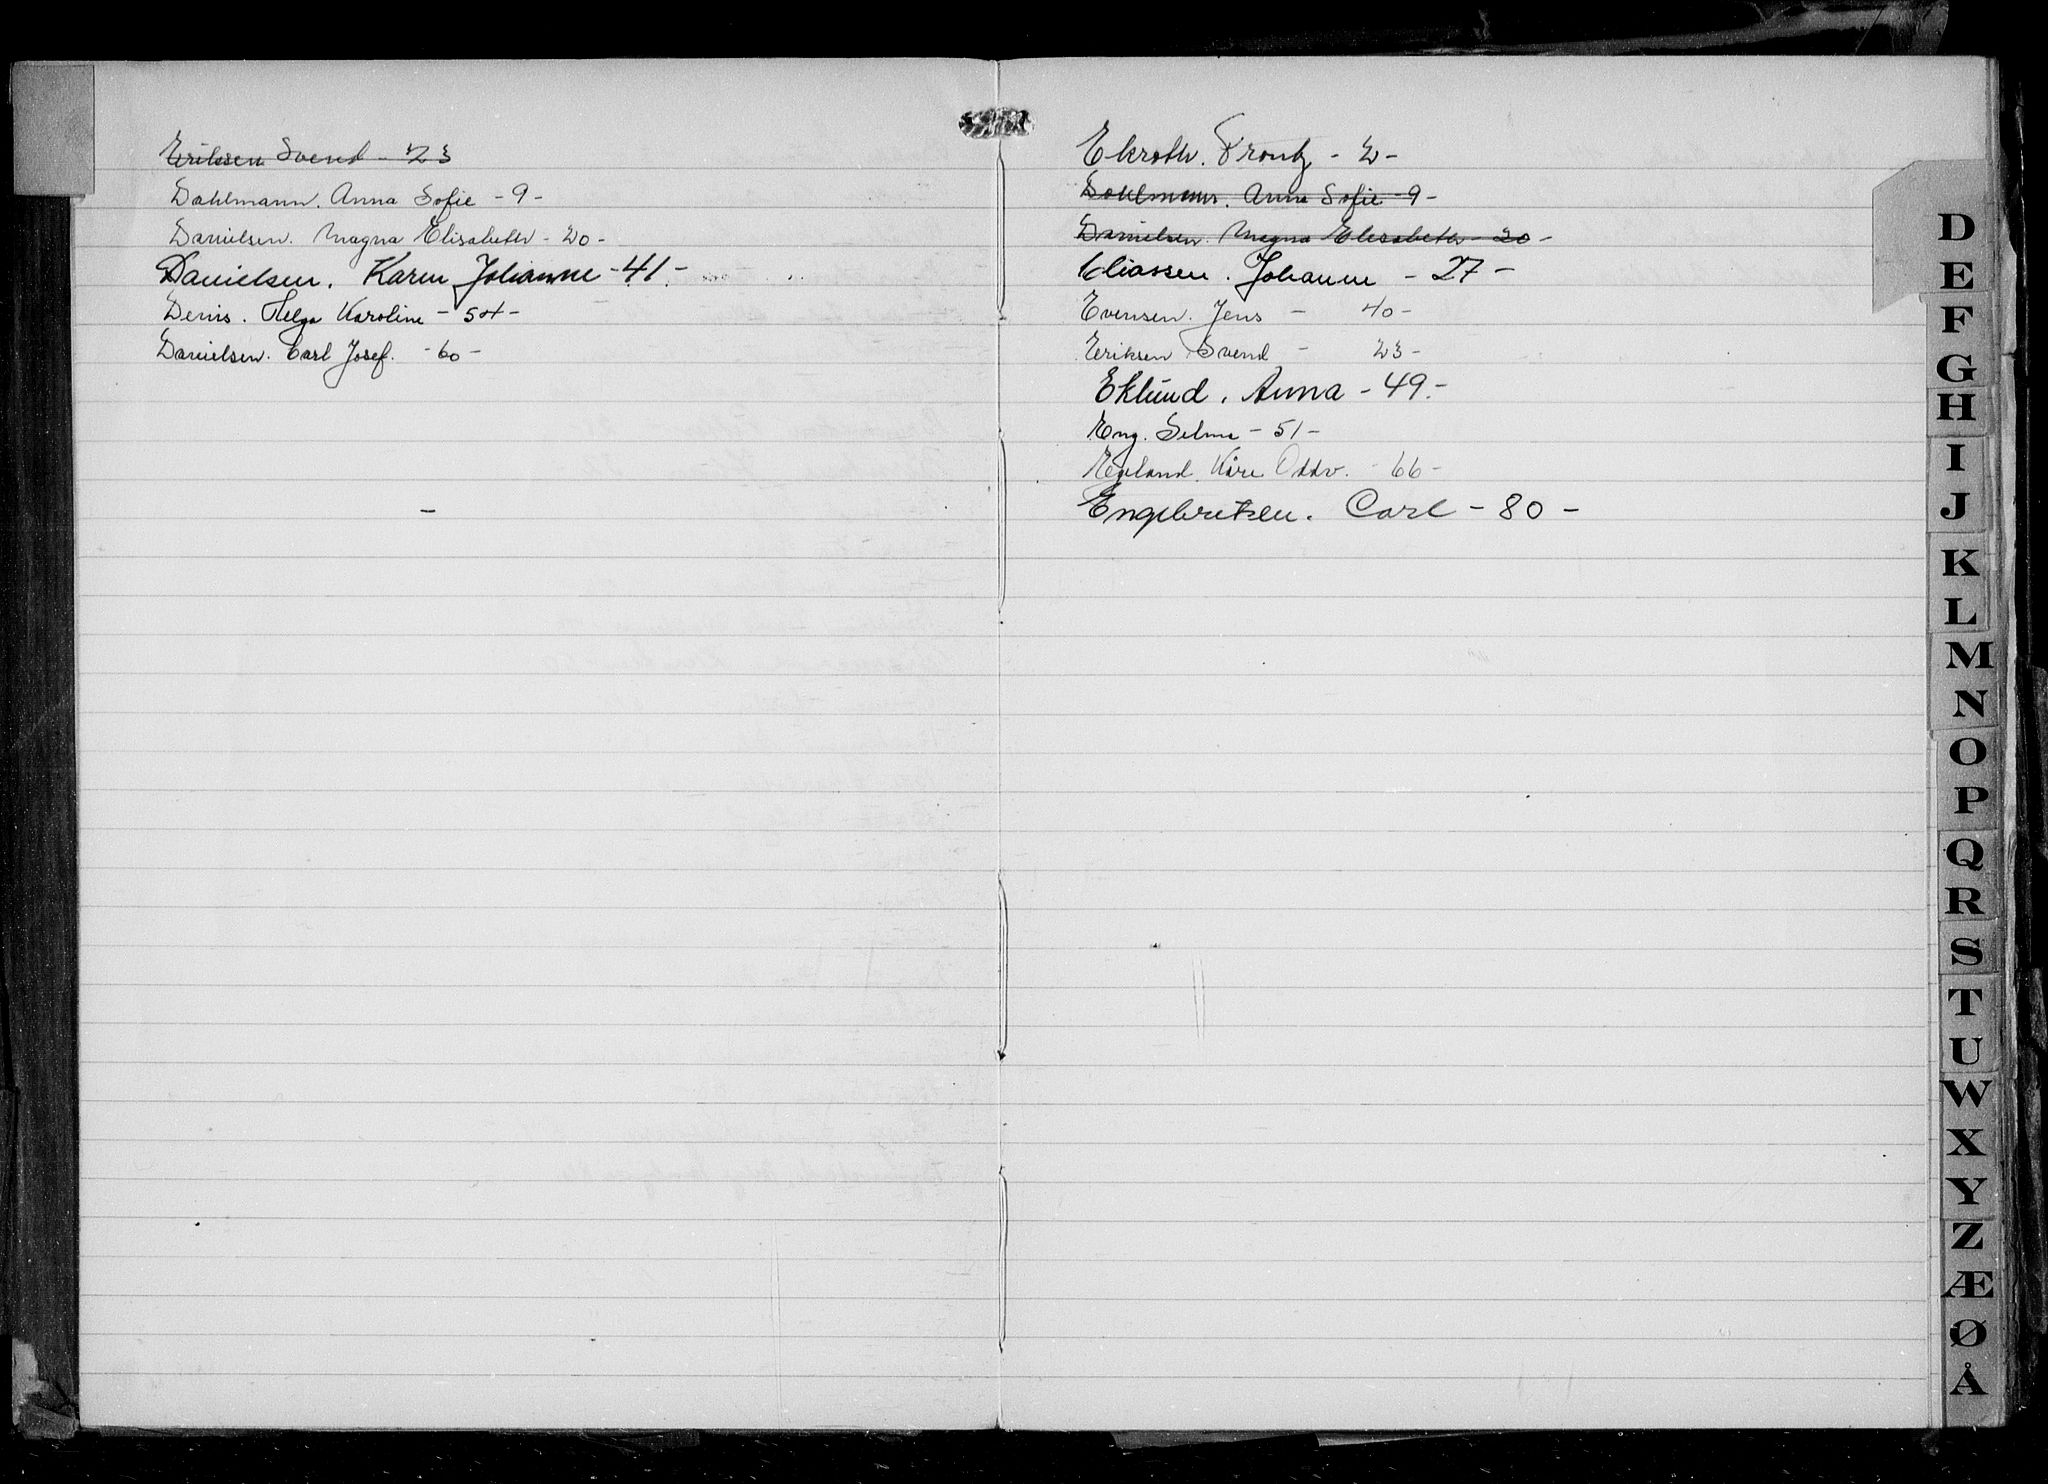 Eriksen Svend - 23
Dahlmann. Anna Sofie - 9 -
Danielsen. Magna Elisabeth - 20 -
Danielsen. Karen Johanne - 41 -
Denis. Helga Karoline - 54 -
Danielsen. Carl Josef. - 60 -
-
Ekroth. Frantz - 2 -
Dahlmann. Anna Sofie - 9 -
Danielsen. Magna Elisabeth - 20 -
Eliassen. Johanne - 27 -
Evensen. Jens - 40 -
Eriksen Svend - 23 -
Eklund. Anna - 49. -
Eng. Selma - 51 -
Egeland. Kåre Oddv. - 66 -
Engebretsen. Carl - 80 -
D
E
F
G
H
I
J
K
L
M
N
O
P
Q
R
S
T
U
W
X
Y
Z
Æ
Ø
Å